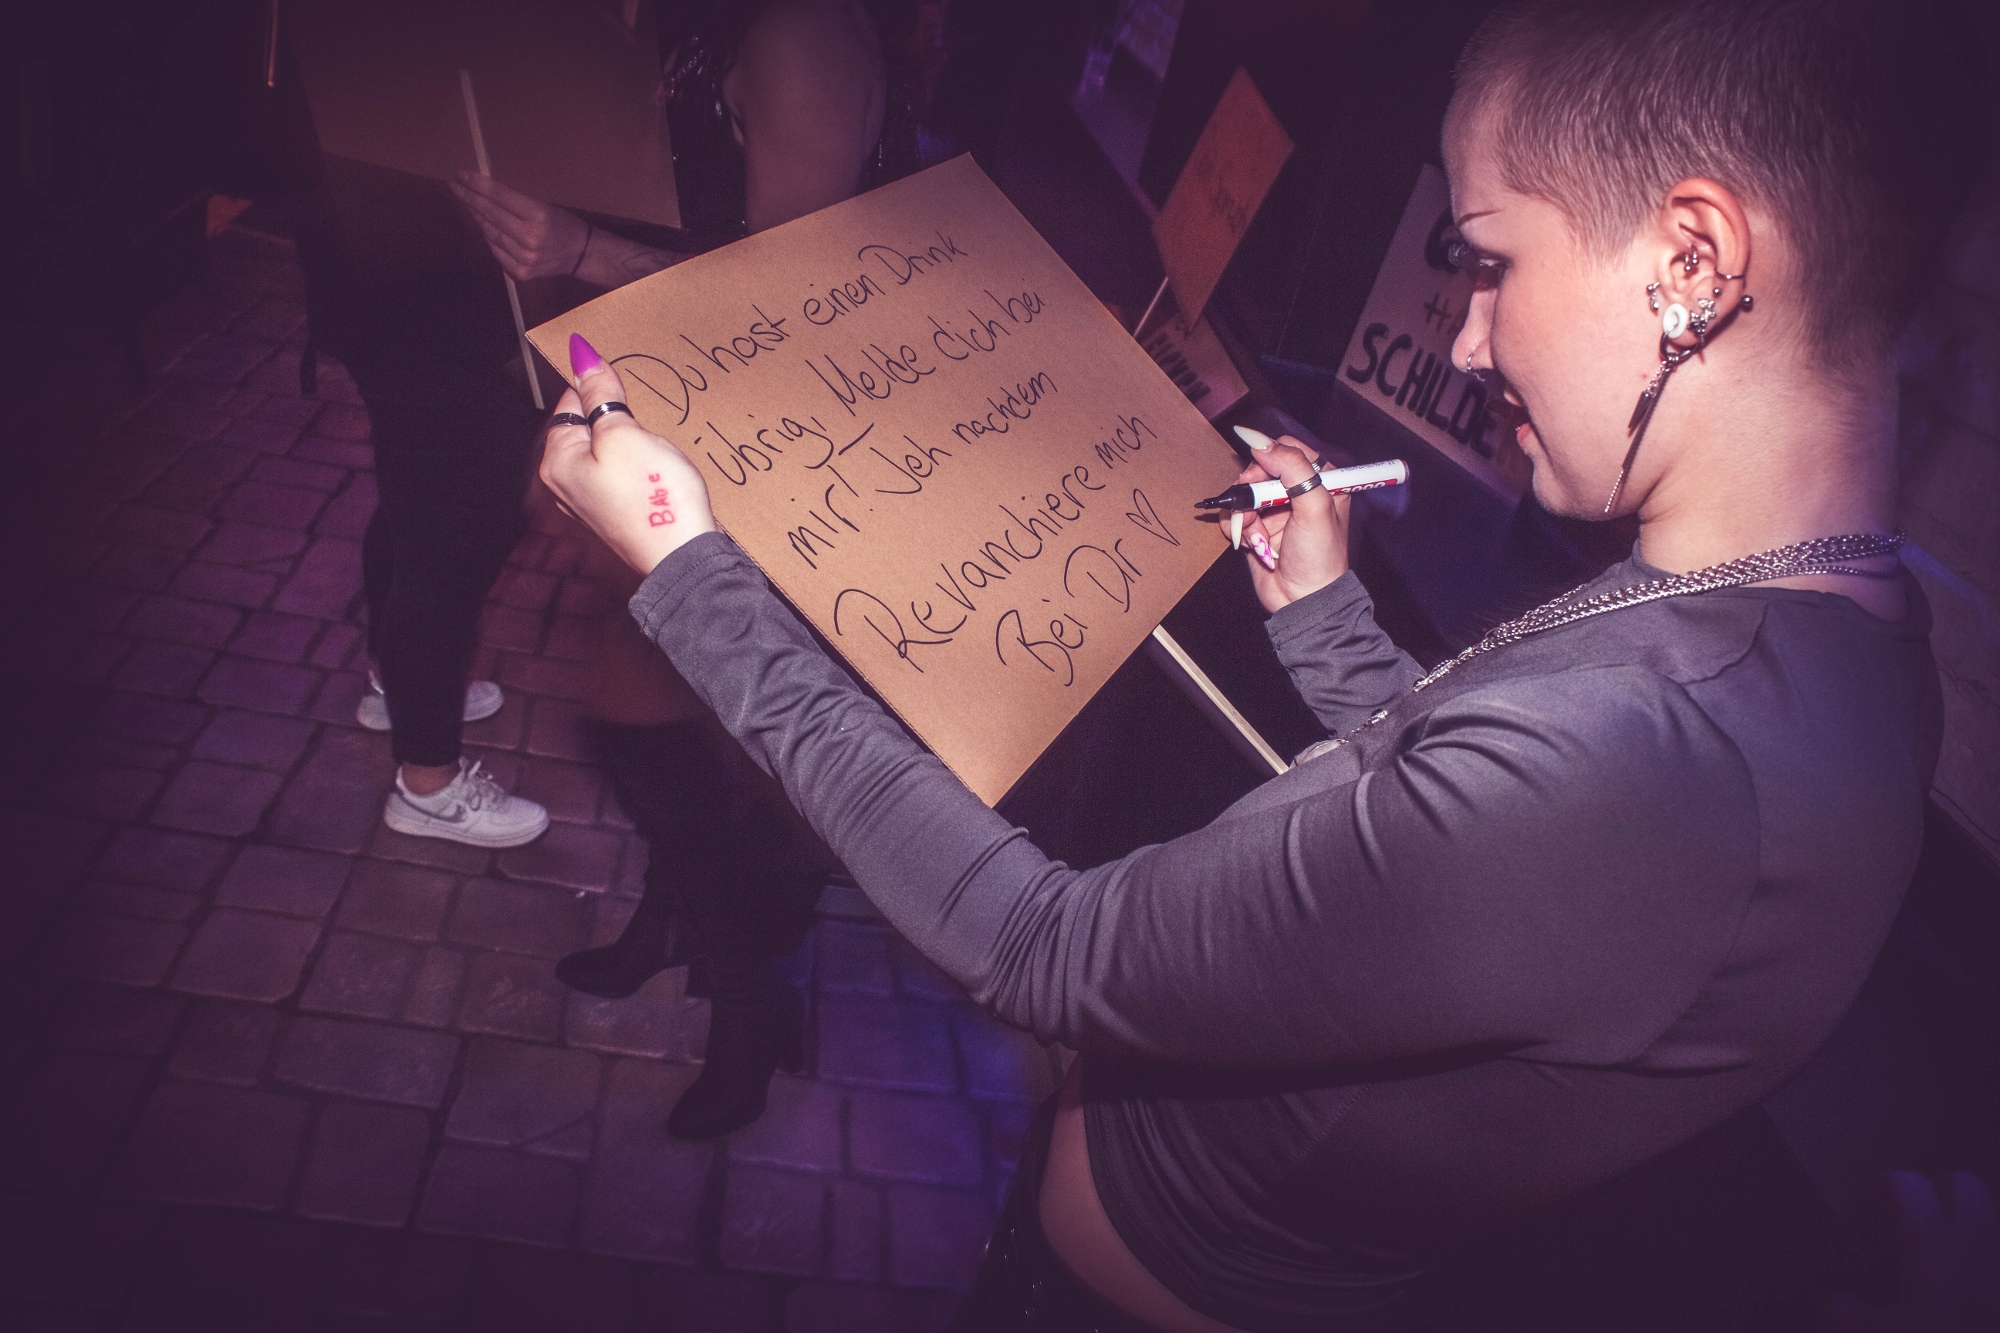 Du hast einen Drink
übrig, Melde dich bei
mir! Ich nachdem
Revanchiere mich
Bei Dir ♡
BAbe
SCHILDE